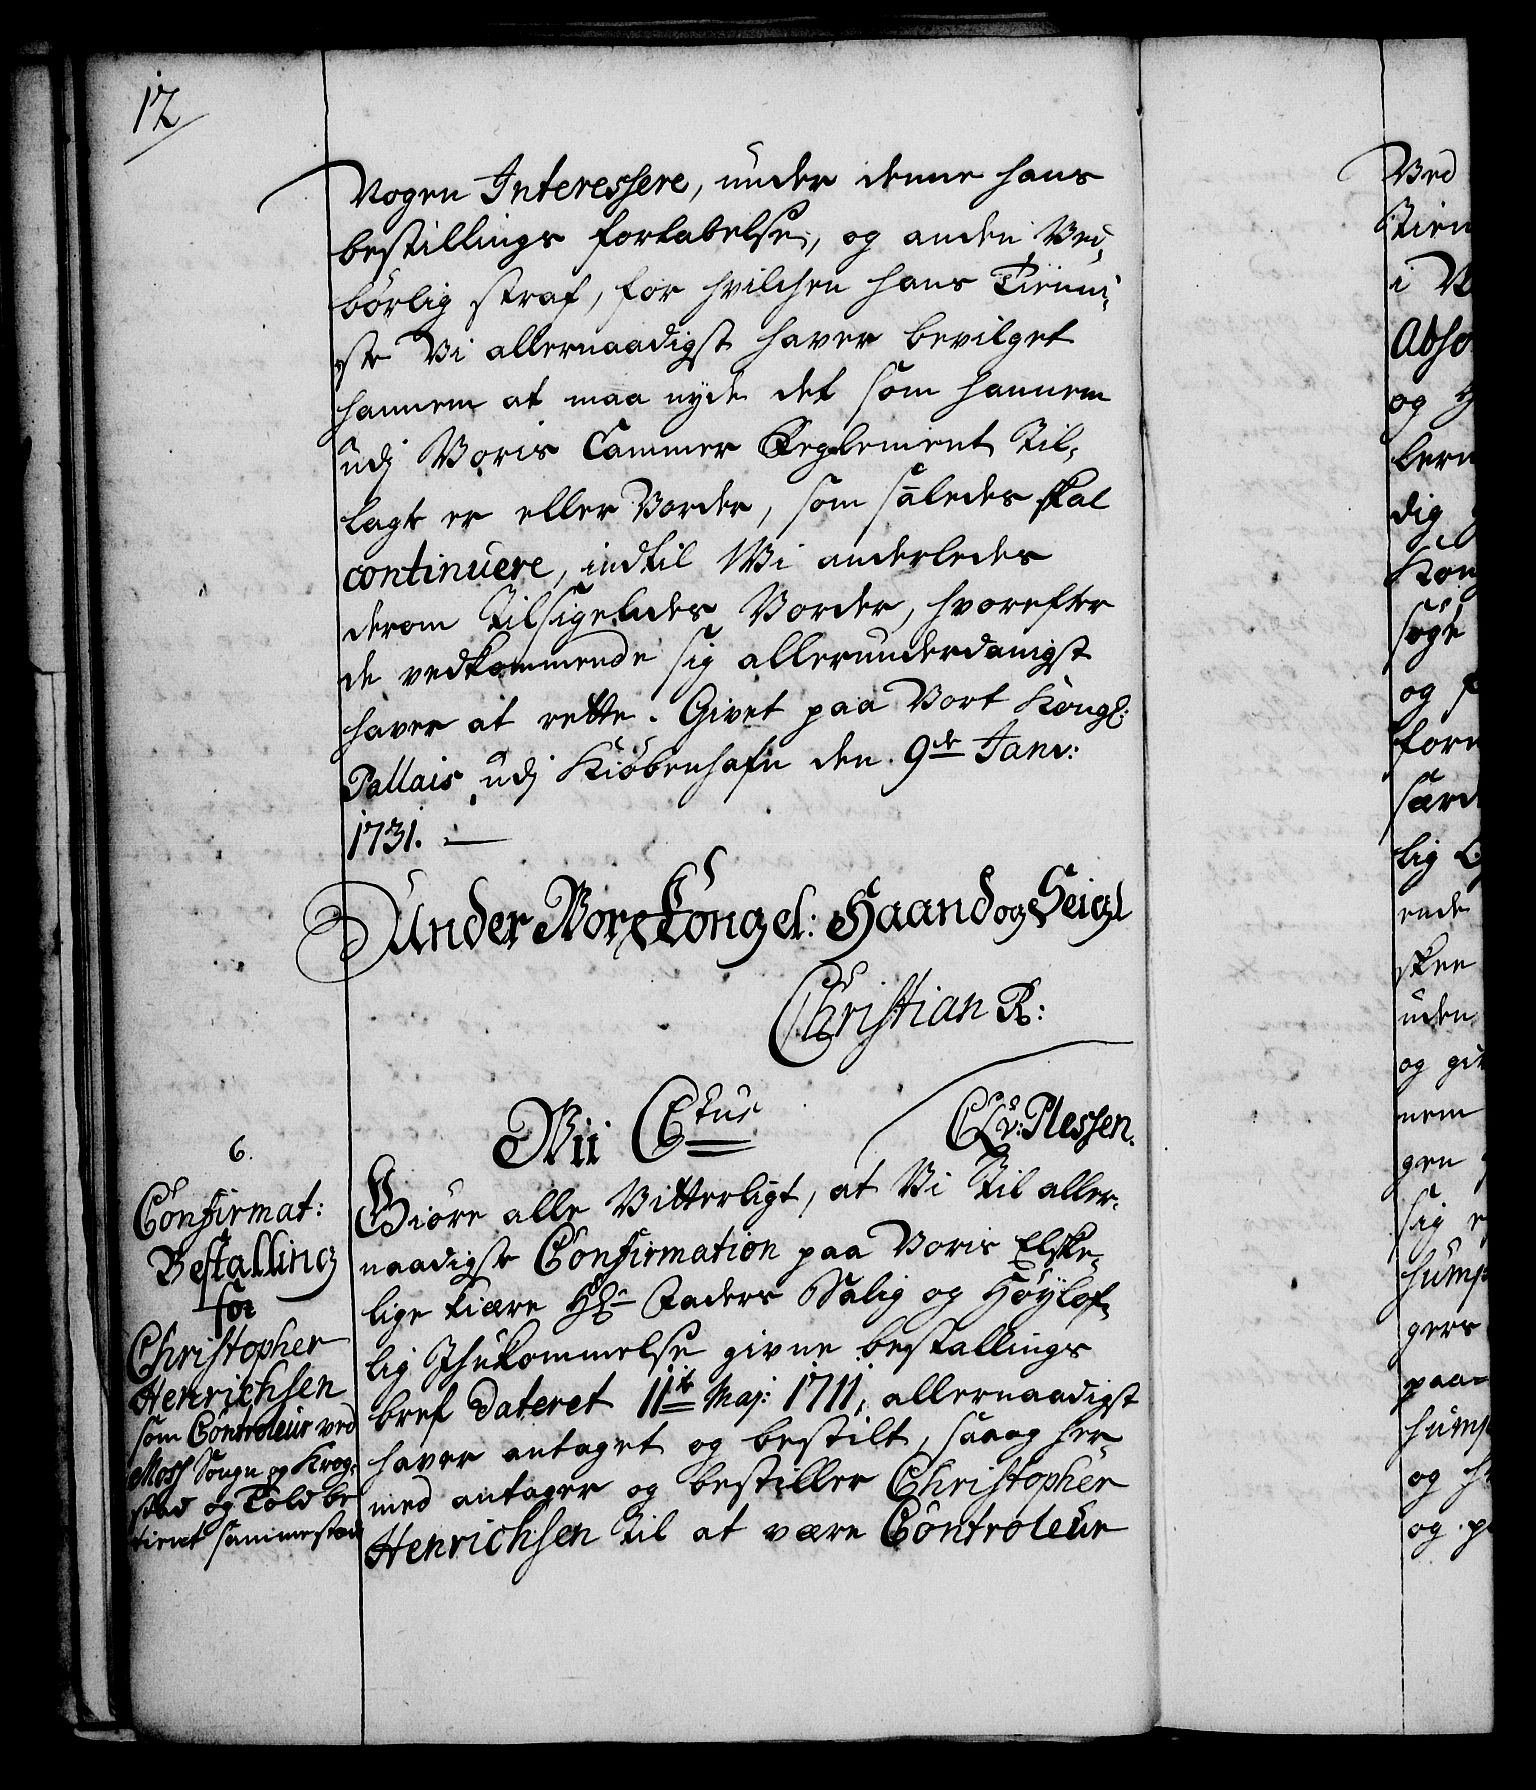 12
Nogen Interessere, under denne hans
bestillings fortabelse, og anden Ved¬
börlig straf, for hvilchen hans Tienni¬
ste Vi allernaadigst haver bevilget
hannem at maa nyde det som hannem
udj Voris Cammer Reglement til¬
lagt er eller Vorder, som således skal
continuere, indtil Wi anderledes
derom tilsigelndes Vorder, hvorefter
de vedkommende sig allerunderdanigst
haver at rette. Givet paa Vort Kongl:
Pallais udj Kiöbenhafn den 9de Janv:
1731. —
Under Vor Kongel: Haand og Seigl
Christian R:
CLv: Plessen.
Wii C6tus
6.
Confirmat:
Bestalling
for
Christopher
Henrichsen
som Controleur ved
Moss Sogn og Krog¬
stad og Told be
tient sammestæd
Giöre alle Vitterligt, at Vi til aller¬
naadigste Confirmation paa Voris Elske¬
lige kiære Hr Faders Salig og Höylof¬
lig Ihukommelse givne bestallings
bref dateret 11te Maj: 1711, allernaadigst
haver antaget og bestilt, saa og her¬
med antager og bestiller Christopher
Henrichsen til at være Controleur
Ved
Tien
i V
Abso
og H
lern
dig
Kong
sogt
og
forn
særd
lig
ende
skee
uden
og gi
nem
gen
sig
hump
gers
paa=
hump
og
og p